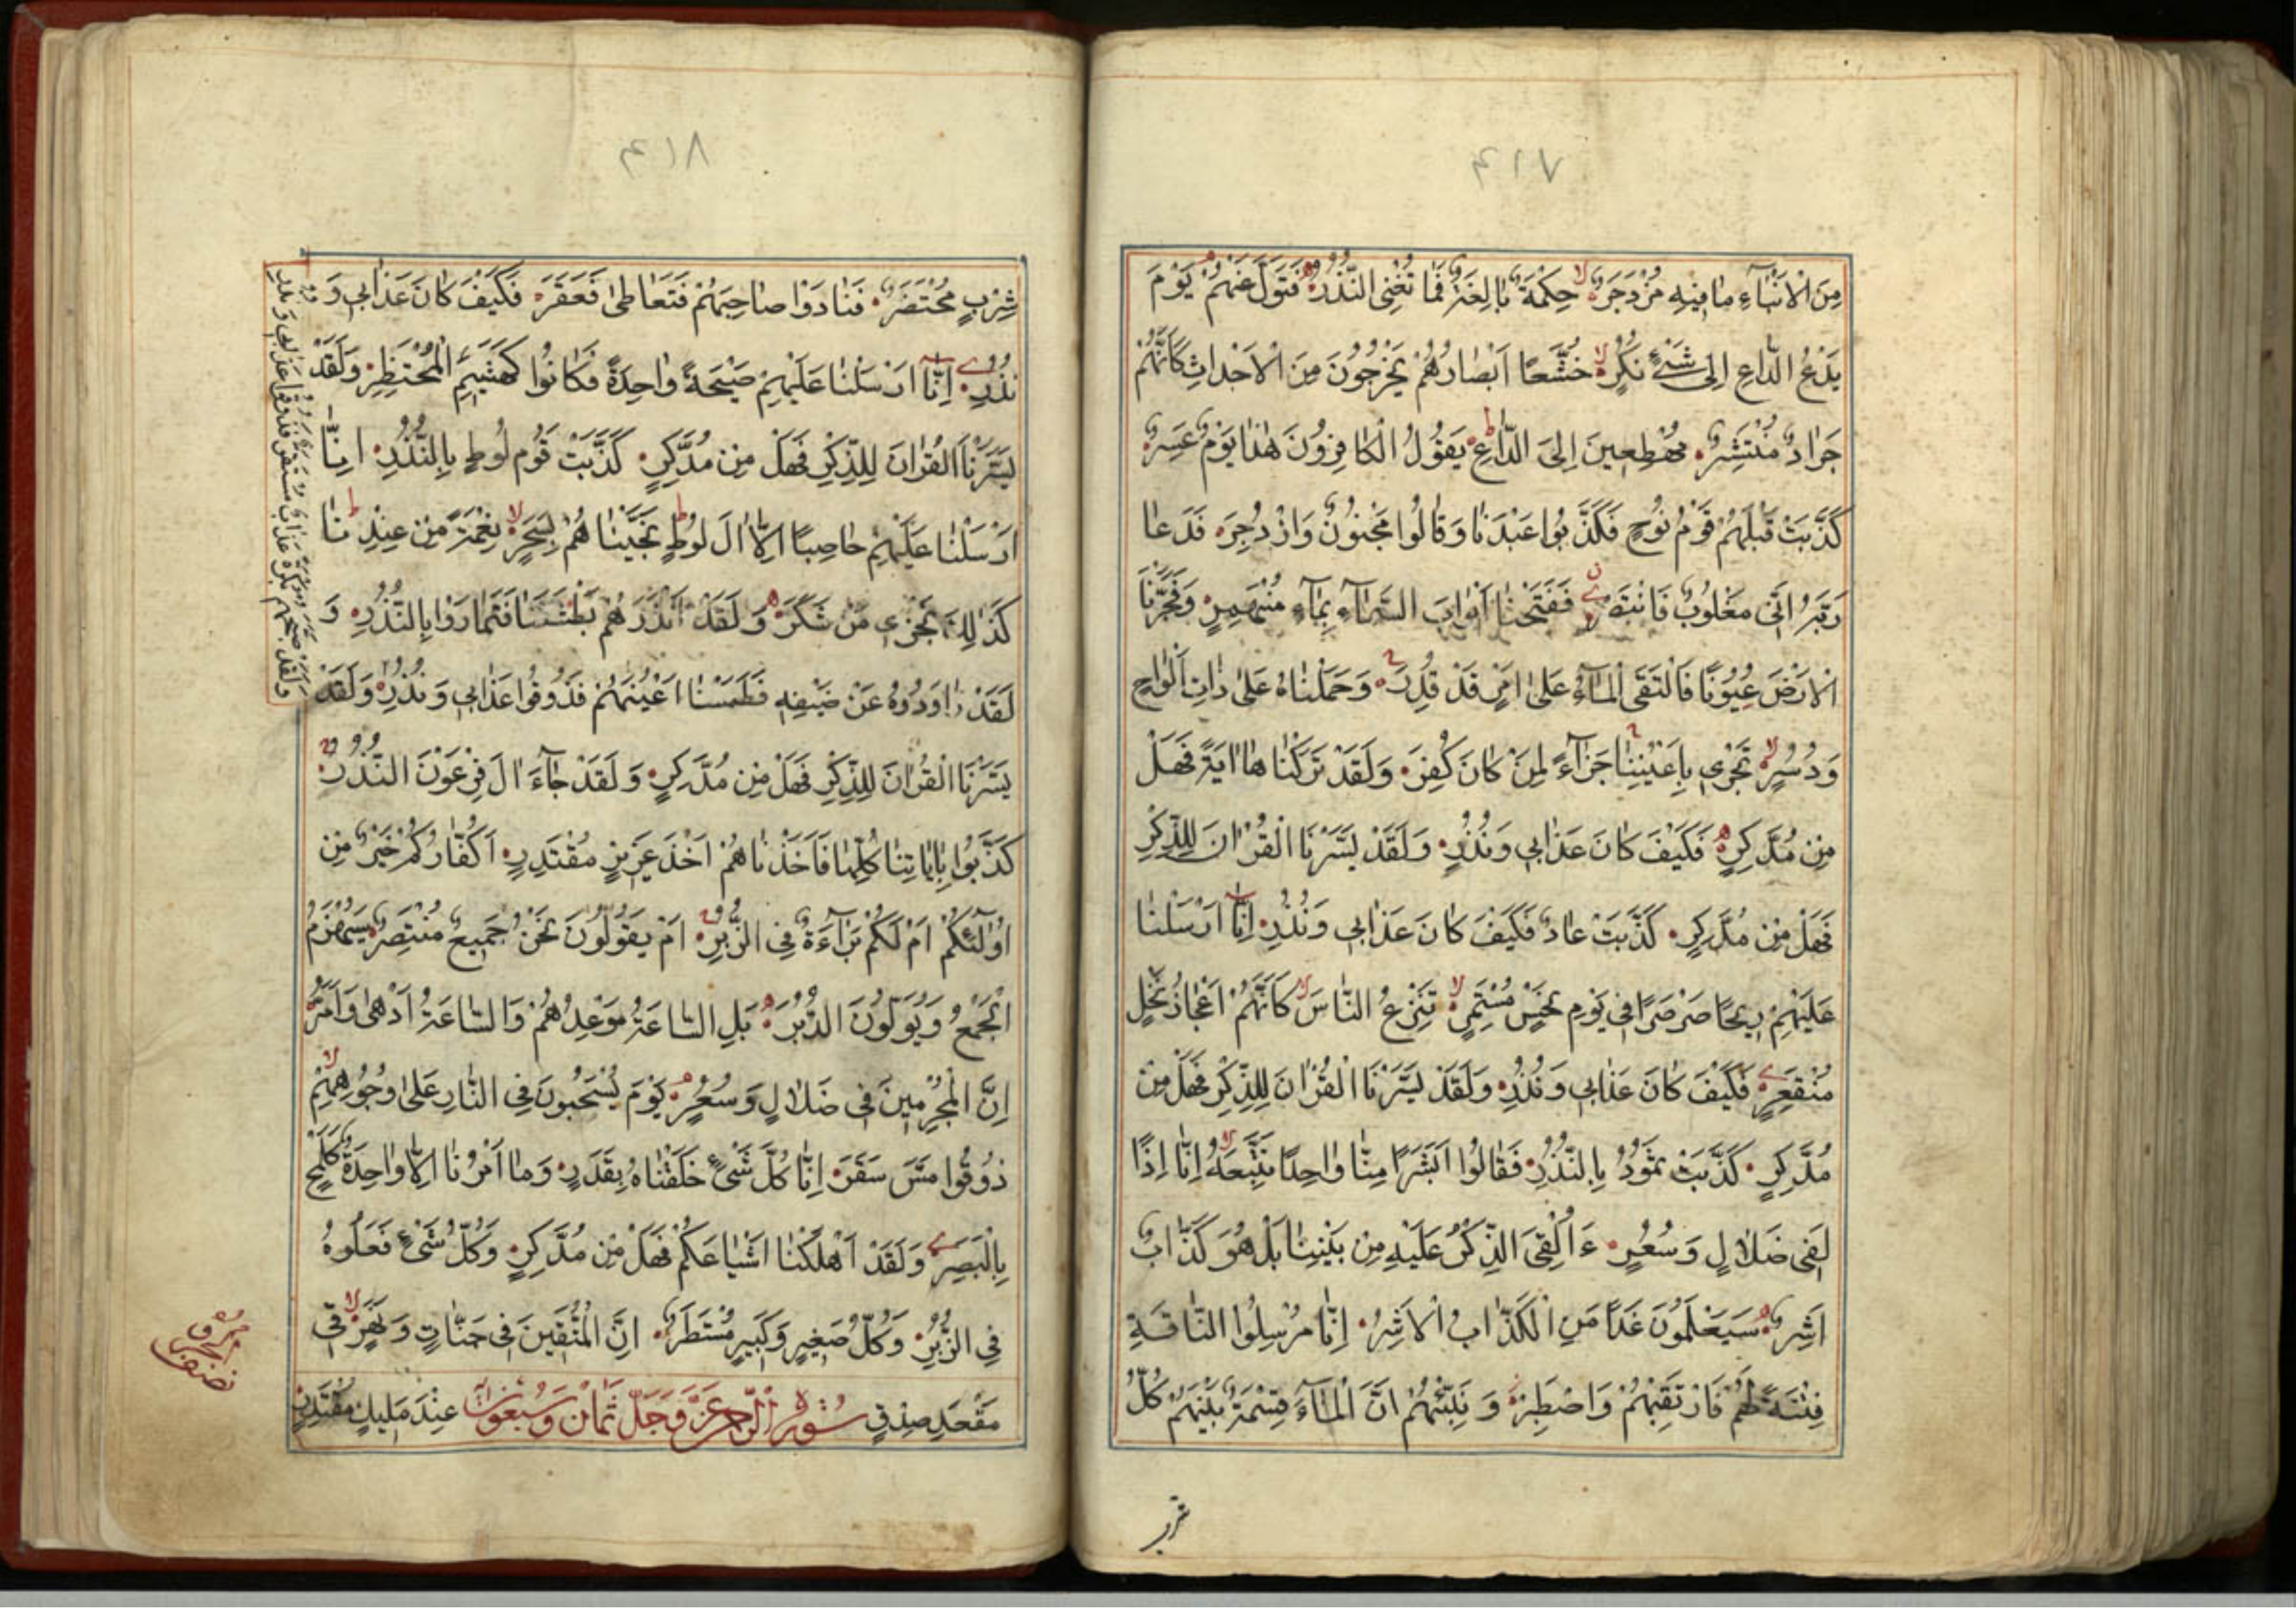 ۴۱۷
مِنَ الْاَنْبَآءِ مَا فِيْهِ مُزْدَجَرٌ حِكْمَةٌ بَالِغَةٌ فَمَا تُغْنِی النُّذُرُ فَتَوَلَّ عَنْهُمْ یَوْمَ
یَدْعُ الدَّاعِ اِلٰی شَیْءٍ نُكُرٍ خُشَّعًا اَبْصَارُهُمْ یَخْرُجُوْنَ مِنَ الْاَجْدَاثِ كَاَنَّهُمْ
جَرَادٌ مُنْتَشِرٌ مُهْطِعِینَ اِلَی الدَّاعِ یَقُوْلُ الْكَافِرُوْنَ هٰذَا یَوْمٌ عَسِرٌ
كَذَّبَتْ قَبْلَهُمْ قَوْمُ نُوْحٍ فَكَذَّبُوا عَبْدَنَا وَقَالُوا مَجْنُوْنٌ وَازْدُجِرَ فَدَعَا
رَبَّهُ اَنِّی مَغْلُوْبٌ فَانْتَصِرْ فَفَتَحْنَا اَبْوَابَ السَّمَآءِ بِمَآءٍ مُنْهَمِرٍ وَفَجَّرْنَا
الْاَرْضَ عُیُوْنًا فَالْتَقَی الْمَآءُ عَلٰی اَمْرٍ قَدْ قُدِرَ وَحَمَلْنَاهُ عَلٰی ذَاتِ اَلْوَاحٍ
وَدُسُرٍ تَجْرِی بِاَعْیُنِنَا جَزَآءً لِمَنْ كَانَ كُفِرَ وَلَقَدْ تَرَكْنَاهَا اٰیَةً فَهَلْ
مِنْ مُدَّكِرٍ فَكَیْفَ كَانَ عَذَابِی وَنُذُرِ وَلَقَدْ یَسَّرْنَا الْقُرْاٰنَ لِلذِّكْرِ
فَهَلْ مِنْ مُدَّكِرٍ كَذَّبَتْ عَادٌ فَكَیْفَ كَانَ عَذَابِی وَنُذُرِ اِنَّا اَرْسَلْنَا
عَلَیْهِمْ رِیْحًا صَرْصَرًا فِی یَوْمِ نَحْسٍ مُسْتَمِرٍّ تَنْزِعُ النَّاسَ كَاَنَّهُمْ اَعْجَازُ نَخْلٍ
مُنْقَعِرٍ فَكَیْفَ كَانَ عَذَابِی وَنُذُرِ وَلَقَدْ یَسَّرْنَا الْقُرْاٰنَ لِلذِّكْرِ فَهَلْ مِنْ
مُدَّكِرٍ كَذَّبَتْ ثَمُوْدُ بِالنُّذُرِ فَقَالُوا اَبَشَرًا مِنَّا وَاحِدًا نَتَّبِعُهُ اِنَّا اِذًا
لَفِی ضَلَالٍ وَسُعُرٍ ءَاُلْقِیَ الذِّكْرُ عَلَیْهِ مِنْ بَیْنِنَا بَلْ هُوَ كَذَّابٌ
اَشِرٌ سَیَعْلَمُوْنَ غَدًا مَنِ الْكَذَّابُ الْاَشِرُ اِنَّا مُرْسِلُوا النَّاقَةِ
فِتْنَةً لَهُمْ فَارْتَقِبْهُمْ وَاصْطَبِرْ وَنَبِّئْهُمْ اَنَّ الْمَآءَ قِسْمَةٌ بَیْنَهُمْ كُلُّ
۴۱۸
شِرْبٍ مُحْتَضَرٌ فَنَادَوْا صَاحِبَهُمْ فَتَعَاطٰی فَعَقَرَ فَكَیْفَ كَانَ عَذَابِی وَ
نُذُرِ اِنَّا اَرْسَلْنَا عَلَیْهِمْ صَیْحَةً وَاحِدَةً فَكَانُوا كَهَشِیْمِ الْمُحْتَظِرِ وَلَقَدْ
یَسَّرْنَا الْقُرْاٰنَ لِلذِّكْرِ فَهَلْ مِنْ مُدَّكِرٍ كَذَّبَتْ قَوْمُ لُوْطٍ بِالنُّذُرِ اِنَّا
اَرْسَلْنَا عَلَیْهِمْ حَاصِبًا اِلَّا اٰلَ لُوْطٍ نَجَّیْنَاهُمْ بِسَحَرٍ نِعْمَةً مِنْ عِنْدِنَا
كَذٰلِكَ نَجْزِی مَنْ شَكَرَ وَلَقَدْ اَنْذَرَهُمْ بَطْشَتَنَا فَتَمَارَوْا بِالنُّذُرِ وَ
لَقَدْ رَاوَدُوْهُ عَنْ ضَیْفِهِ فَطَمَسْنَا اَعْیُنَهُمْ فَذُوْقُوا عَذَابِی وَنُذُرِ وَلَقَدْ
یَسَّرْنَا الْقُرْاٰنَ لِلذِّكْرِ فَهَلْ مِنْ مُدَّكِرٍ وَلَقَدْ جَآءَ اٰلَ فِرْعَوْنَ النُّذُرُ
كَذَّبُوا بِاٰیَاتِنَا كُلِّهَا فَاَخَذْنَاهُمْ اَخْذَ عَزِیْزٍ مُقْتَدِرٍ اَكُفَّارُكُمْ خَیْرٌ مِنْ
اُولٰٓئِكُمْ اَمْ لَكُمْ بَرَآءَةٌ فِی الزُّبُرِ اَمْ یَقُوْلُوْنَ نَحْنُ جَمِیعٌ مُنْتَصِرٌ سَیُهْزَمُ
الْجَمْعُ وَیُوَلُّوْنَ الدُّبُرَ بَلِ السَّاعَةُ مَوْعِدُهُمْ وَالسَّاعَةُ اَدْهٰی وَاَمَرُّ
اِنَّ الْمُجْرِمِیْنَ فِی ضَلَالٍ وَسُعُرٍ یَوْمَ یُسْحَبُوْنَ فِی النَّارِ عَلٰی وُجُوْهِهِمْ
ذُوْقُوا مَسَّ سَقَرَ اِنَّا كُلَّ شَیْءٍ خَلَقْنَاهُ بِقَدَرٍ وَمَا اَمْرُنَا اِلَّا وَاحِدَةٌ كَلَمْحٍ
بِالْبَصَرِ وَلَقَدْ اَهْلَكْنَا اَشْیَاعَكُمْ فَهَلْ مِنْ مُدَّكِرٍ وَكُلُّ شَیْءٍ فَعَلُوْهُ
فِی الزُّبُرِ وَكُلُّ صَغِیْرٍ وَكَبِیْرٍ مُسْتَطَرٌ اِنَّ الْمُتَّقِیْنَ فِی جَنَّاتٍ وَنَهَرٍ فِی
مَقْعَدِ صِدْقٍ عِنْدَ مَلِیْكٍ مُقْتَدِرٍ
سُوْرَةُ الرَّحْمٰنِ عَزَّ وَجَلَّ ثَمَانٌ وَسَبْعُوْنَ
وَلَقَدْ صَبَّحَهُمْ بُكْرَةً عَذَابٌ مُسْتَقِرٌّ فَذُوْقُوا عَذَابِی وَنُذُرِ
نصف